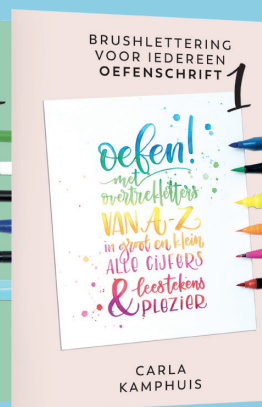 BRUSHLETTERING
VOOR IEDEREEN
OEFENSCHRIFT 1
oefen!
met
overtrekletters
VAN A-Z
in groot en klein,
ALLE CIJFERS
& leestekens
PLEZIER
CARLA
KAMPHUIS